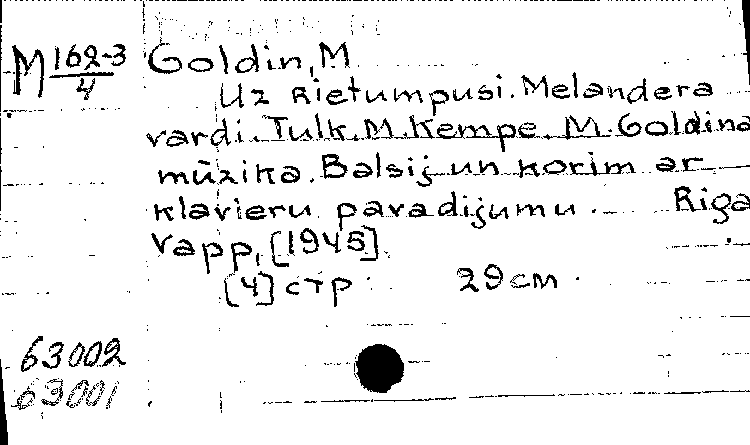 M 162-3/4 Goldin, M
Uz Rietumpusi. Melandera
vardi. Tulk. M. Kempe. M. Goldina
mūzika. Balsij un korim ar
klavieru pavadijumu. Riga
Vapp, [1945].
[4] стр. 29 см.
63002
63001